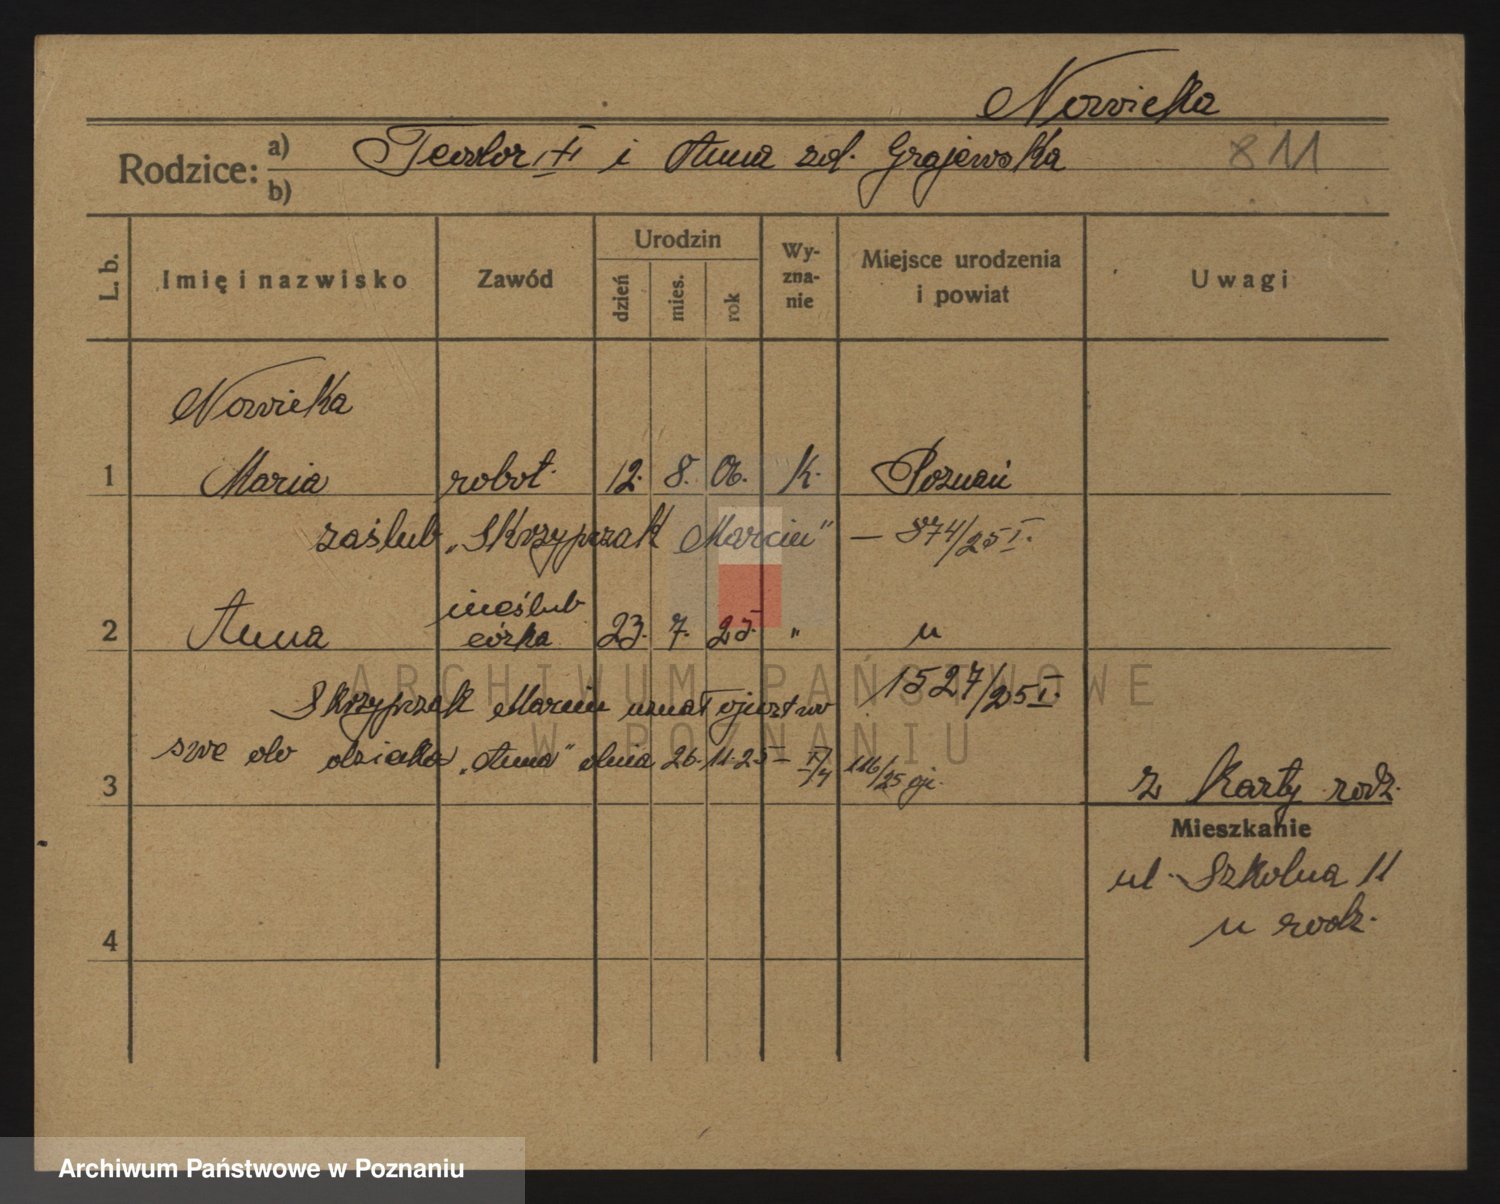 Nowicka
Rodzice: a) Teodor III i Anna zd. Grajewska 811
b)
L. b. Imię i nazwisko Zawód Urodzin dzień mies. rok Wy-zna-nie Miejsce urodzenia i powiat Uwagi
Nowicka
1 Maria robot. 12. 8. 06. k. Poznań
zaślub. „Skrzypczak Marcin" — 874/25 I.
nieślub
2 Anna córka 23. 7. 25. „ "
1527/25 I.
Skrzypczak Marcin uznał ojcostwo
swe do dziecka „Anna" dnia 26. 11. 25 – 116/25 oj.
3 z karty rodz.
Mieszkanie
ul. Szkolna 11
u rodz.
4
ARCHIWUM PAŃSTWOWE
W POZNANIU
Archiwum Państwowe w Poznaniu